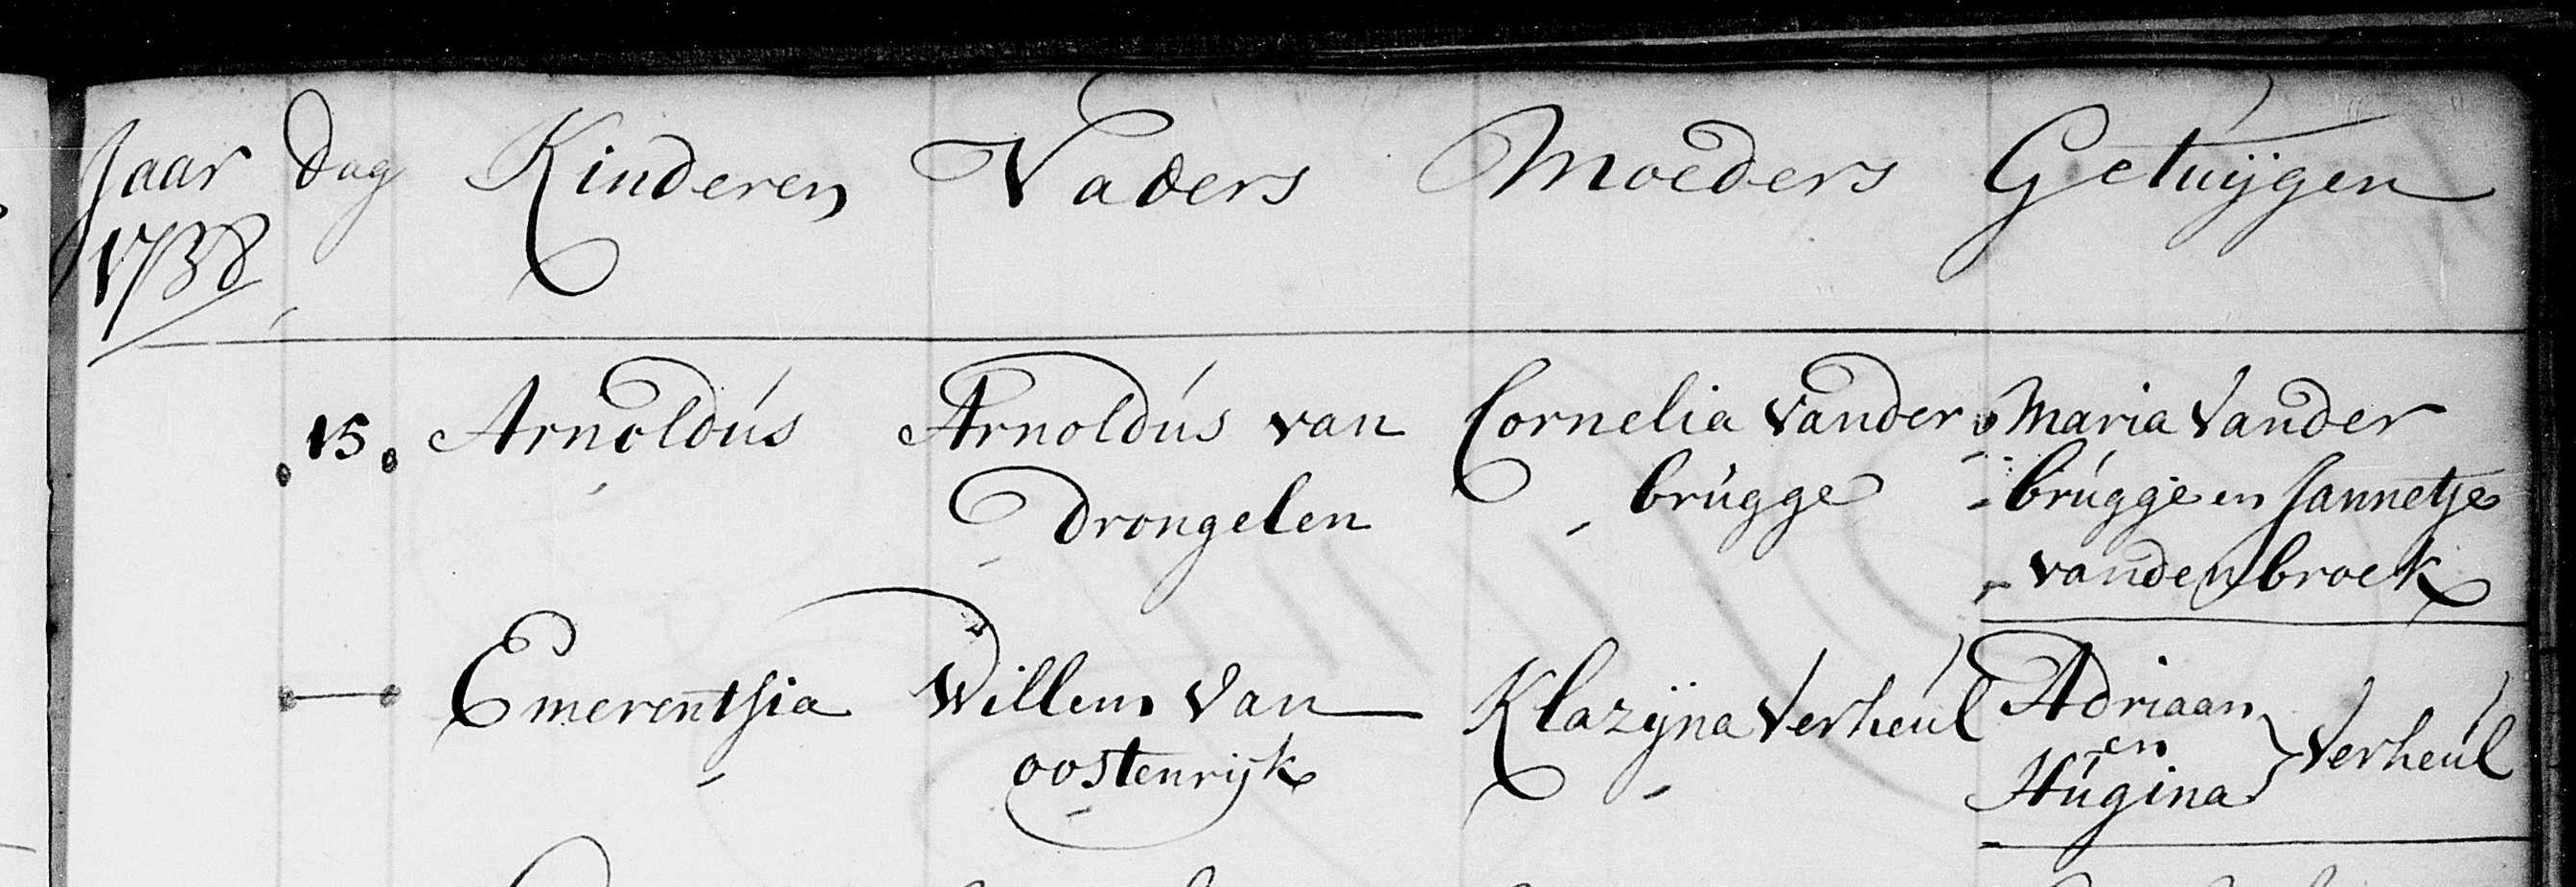 Jaar Dag Kinderen Vaders Moeders Getuijgen
1738
15. Arnoldus Arnoldus van Cornelia vander Maria vander
drongelen brugge brugge en Jannetje
vanden broek
Emerentsia Willem van Klazijna Verheul Adriaan
oostenrijk en Verheul
Hugina